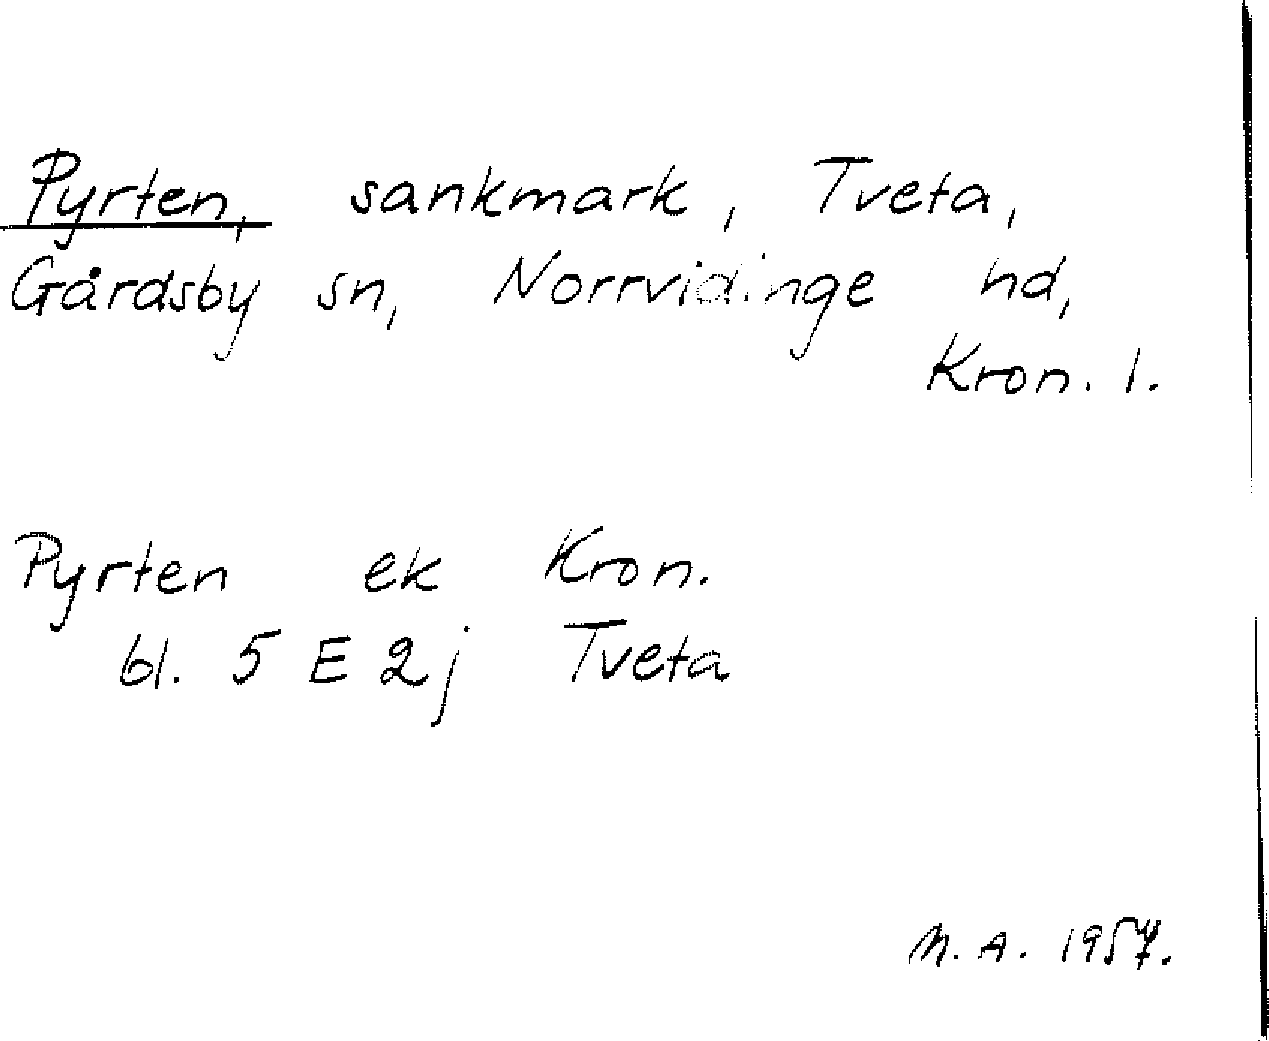 Pyrten, sankmark, Tveta,
Gårdsby sn, Norrvidinge hd,
Kron. l.
Pyrten ek Kron.
bl. 5 E 2 j Tveta
M. A. 1957.